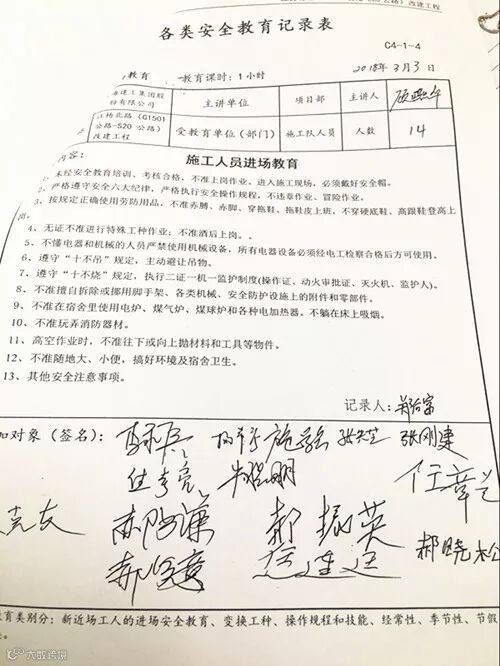 改建工程
各类安全教育记录表
C4-1-4
教育 教育课时：1小时 2018年3月3日
建工集团股份有限公司 主讲单位 项目部 主讲人
江杨北路（G1501公路-S20 公路）改建工程 受教育单位（部门） 施工队人员 人数 14
内容：
施工人员进场教育
1、未经安全教育培训、考核合格，不准上岗作业。进入施工现场，必须戴好安全帽。
2、严格遵守安全六大纪律，严格执行安全操作规程，不违章作业、冒险作业。
3、按规定正确使用劳防用品，不准赤膊、赤脚、穿拖鞋、拖鞋皮上班，不穿硬底鞋、高跟鞋登高上
岗。
4、无证不准进行特殊工种作业；不准酒后上岗。
5、不懂电器和机械的人员严禁使用机械设备，所有电器设备必须经电工检察合格后方可使用。
6、遵守“十不吊”规定，主动避让吊物。
7、遵守“十不烧”规定，执行二证一机一监护制度(操作证、动火审批证、灭火机、监护人)。
8、不准擅自拆除或挪用脚手架、各类机械、安全防护设施上的附件和零部件。
9、不准在宿舍里使用电炉、煤气炉、煤球炉和各种电加热器。不躺在床上吸烟。
10、不准玩弄消防器材。
11、高空作业时，不准往下或向上抛材料和工具等物件。
12、不准随地大、小便，搞好环境及宿舍卫生。
13、其他安全注意事项。
记录人：
加对象（签名）： 张刚建
郝振英
郝晓松
教育类别分：新近场工人的进场安全教育、变换工种、操作规程和技能、经常性、季节性、节假
大数跨境